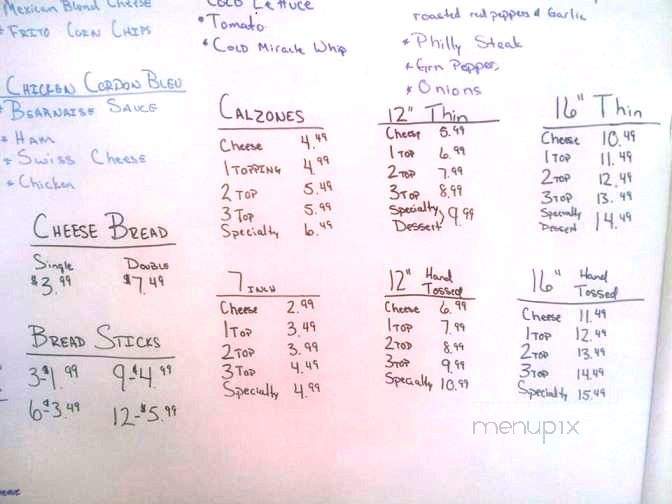 Mexican Blend Cheese
* FRITO CORN CHIPS
COLD LETTUCE
* Tomato
* COLD Miracle Whip
roasted red peppers & Garlic
* Philly Steak
* Grn Pepper,
* Onions
CHICKEN CORDON BLEU
* BEARNAISE SAUCE
* HAM
* Swiss Cheese
* Chicken
CHEESE BREAD
Single Double
$3.99 $7.49
BREAD STICKS
3-$1.99 9-$4.99
6-$3.49 12-$5.99
CALZONES
Cheese 4.49
1 TOPPING 4.99
2 TOP 5.49
3 TOP 5.99
Specialty 6.49
12" Thin
Cheese 5.99
1 TOP 6.99
2 TOP 7.99
3 TOP 8.99
Specialty, 9.99
Dessert
16" Thin
Cheese 10.49
1 TOP 11.49
2 TOP 12.49
3 TOP 13.49
Specialty 14.49
Dessert
7 INCH
Cheese 2.99
1 TOP 3.49
2 TOP 3.99
3 TOP 4.49
Specialty 4.99
12" Hand Tossed
Cheese 6.99
1 TOP 7.99
2 TOP 8.99
3 TOP 9.99
Specialty 10.99
16" Hand Tossed
Cheese 11.49
1 TOP 12.49
2 TOP 13.49
3 TOP 14.49
Specialty 15.49
menupix